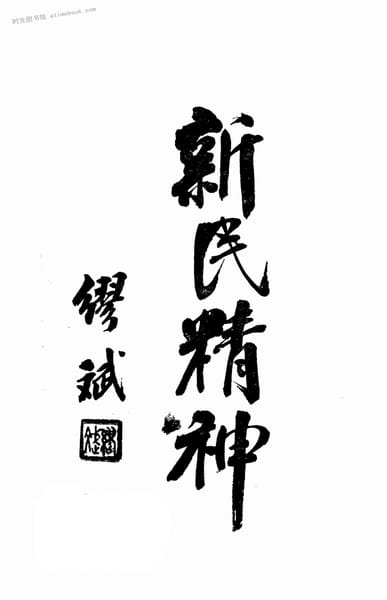 时光图书馆 etimebook.com
新民精神
缪斌